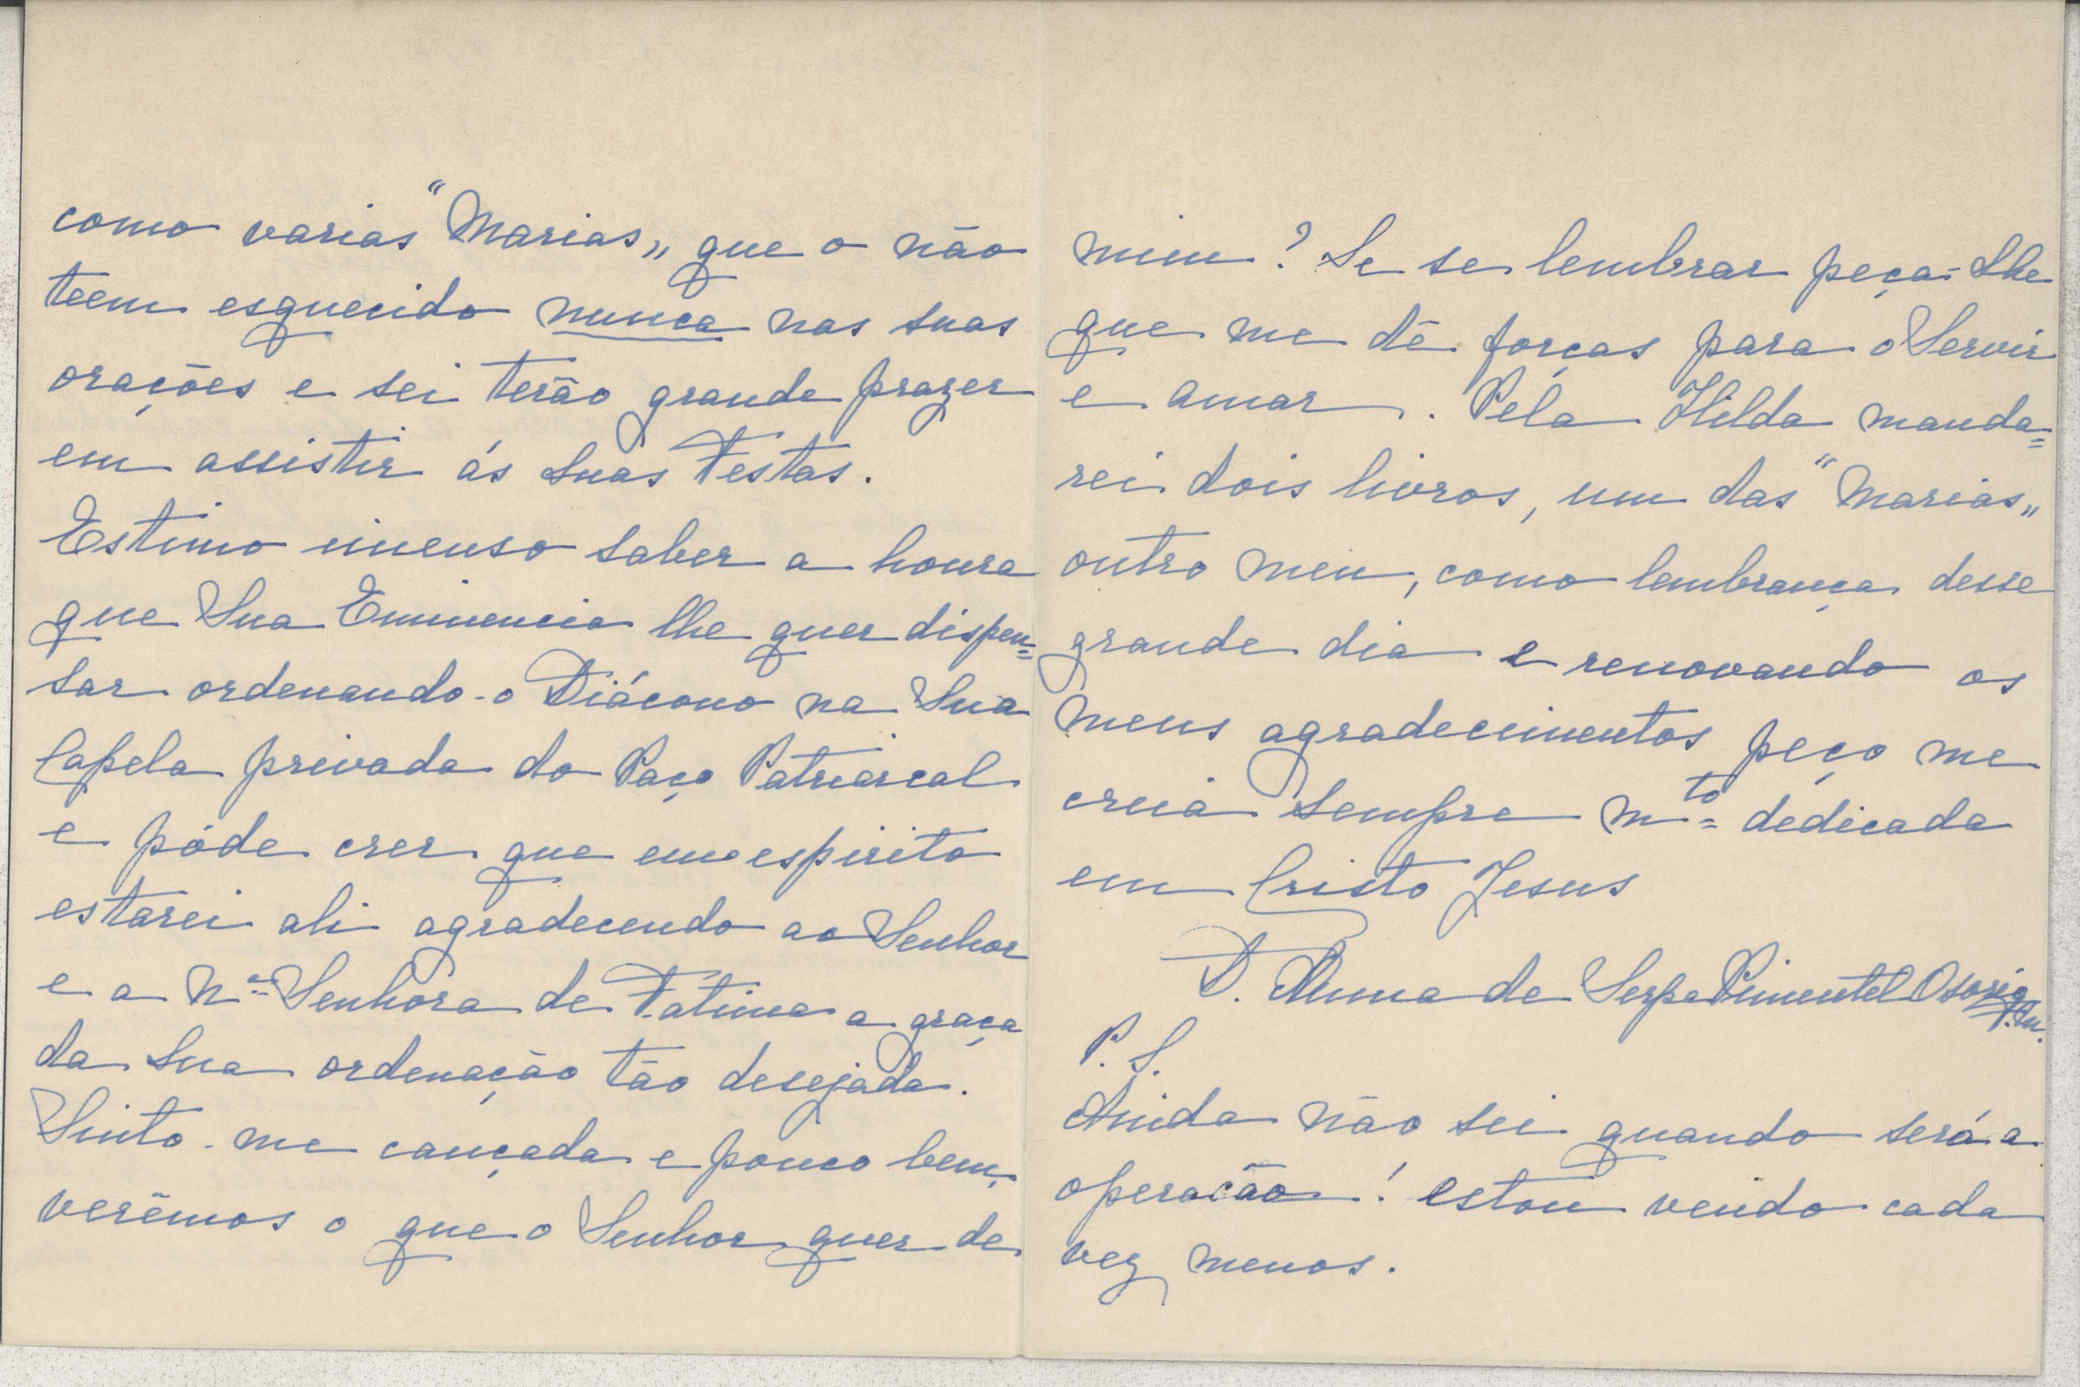 como varias "Marias„ que o não
teem esquecido nunca nas suas
orações e sei terão grande prazer
em assistir ás suas Festas.
Estimo imenso saber a honra
que Sua Eminencia lhe quer dispen=
sar ordenando-o Diácono na Sua
Capela privada do Paço Patriarcal
e póde crer que em espirito
estarei ali agradecendo ao Senhor
e a Nª Senhora de Fátima a graça
da sua ordenação tão desejada.
Sinto-me cançada e pouco bem,
verêmos o que o Senhor quer de
mim? Se se lembrar peça-Lhe
que me dê forças para o Servir
e amar. Pela Hilda manda=
rei dois livros, um das "Marias„
outro meu, como lembrança desse
grande dia e renovando os
meus agradecimentos peço me
creia sempre mto dedicada
em Cristo Jesus
D. Anna de Serpa Pimentel Osorio
P.S.
Ainda não sei quando será a
operação! estou vendo cada
vez menos.